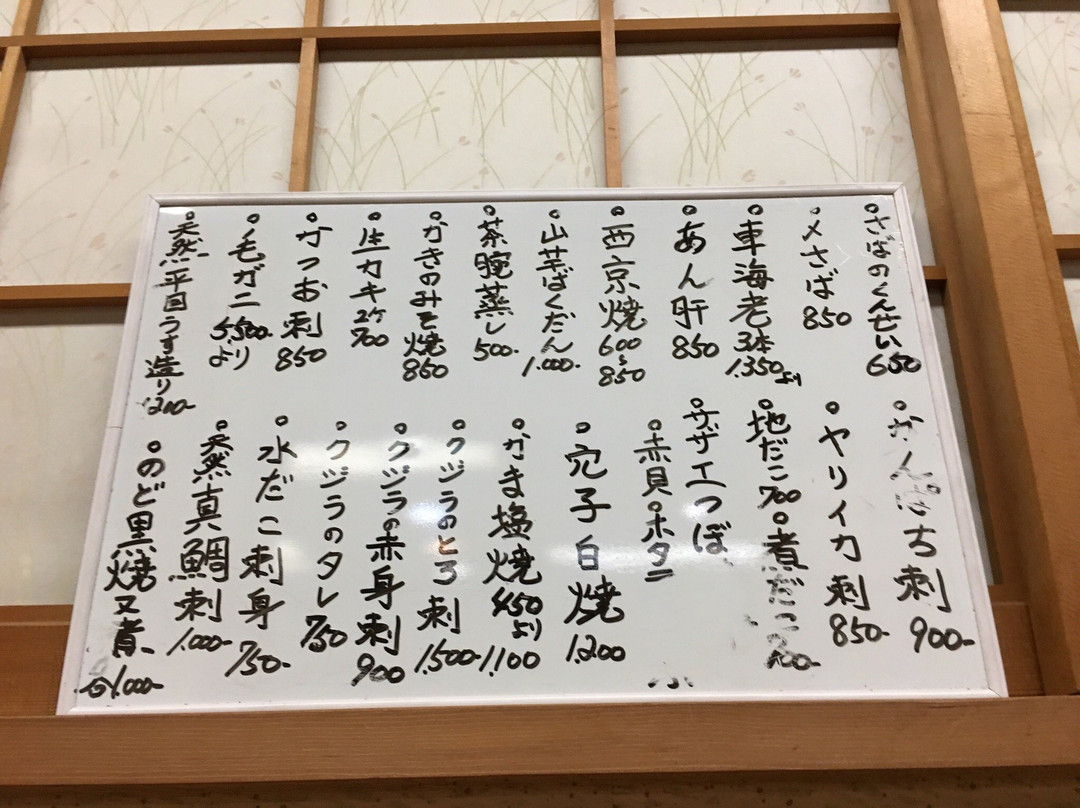 さばのくんせい 650
〆さば 850
車海老 3本 1.350より
あん肝 850
西京焼 600〜850
山芋ばくだん 1.000-
茶腕蒸し 500-
かきのみそ焼 850
生カキ 2ケ 700
かつお刺 850
毛ガニ 5,500-より
天然平目うす造り 1200-
かんぱち刺 900-
ヤリイカ刺 850-
地だこ 700 煮だこ
サザエつぼ
赤貝 ホタテ
穴子白焼 1.200
かま塩焼 450より 1.100
クジラのとろ刺 1.500-
クジラの赤身刺 900
クジラのタレ 750
水だこ刺身 750-
天然真鯛刺 1.000-
のど黒焼又煮 1.000-